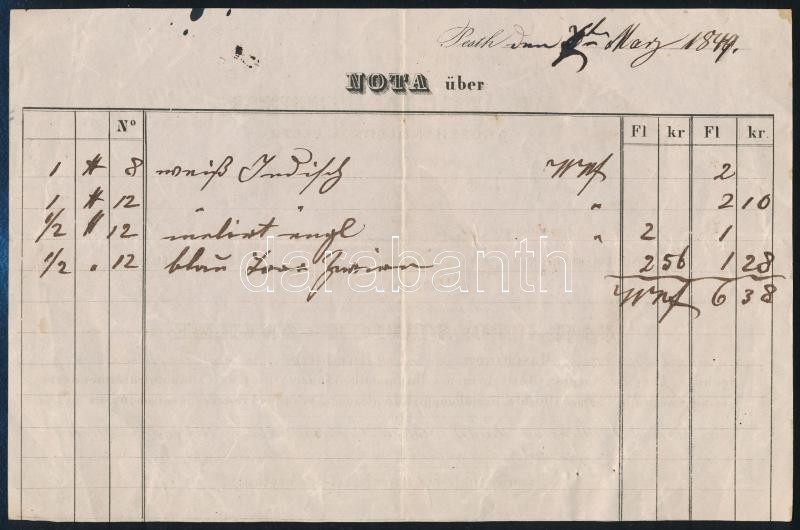 Pesth den März 1849.
NOTA über
Nº Fl kr Fl kr.
1 # 8 weiß Indisch Wrf 2
1 # 12 " 2 10
1/2 # 12 melirt engl " 2 1
1/2 " 12 blau 2 56 1 28
Wrf 6 38
darabanth